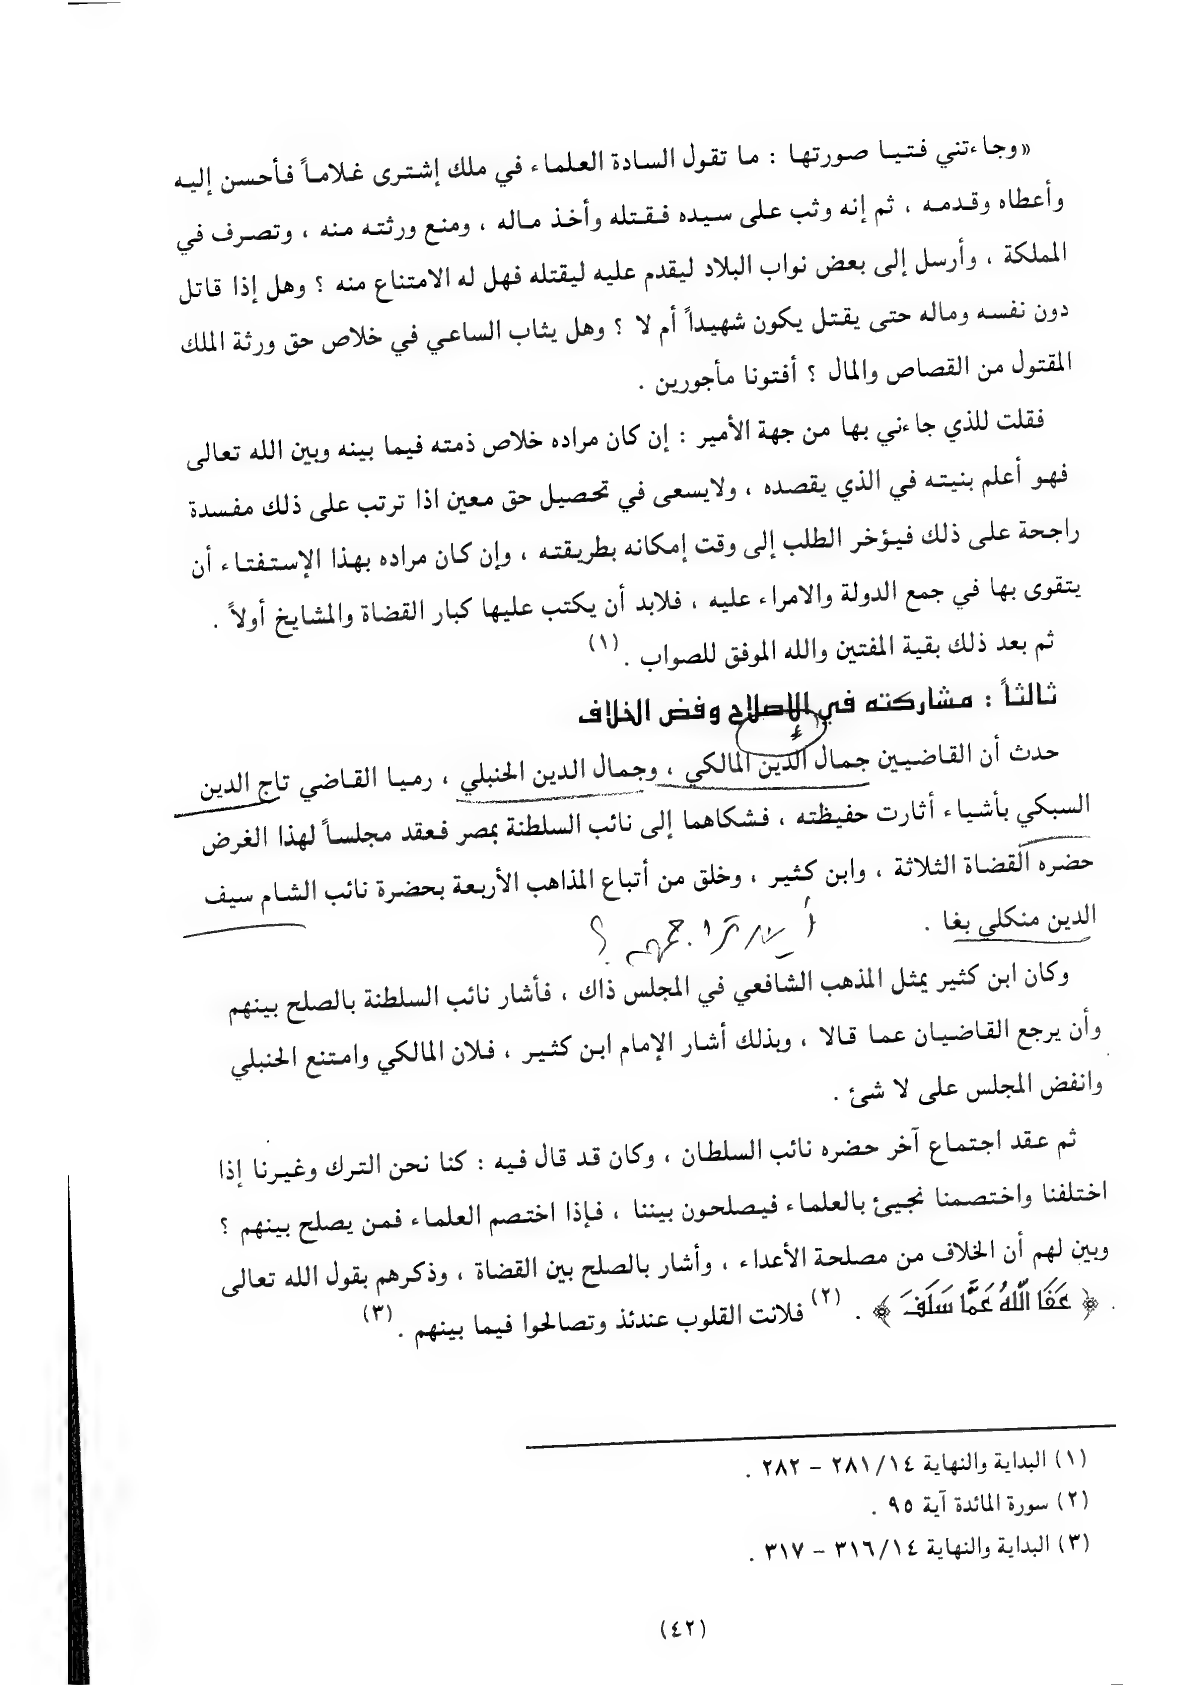 «وجاءتني فتيا صورتها : ما تقول السادة العلماء في ملك إشترى غلاماً فأحسن إليه
وأعطاه وقدمه ، ثم إنه وثب على سيده فقتله وأخذ ماله ، ومنع ورثته منه ، وتصرف في
المملكة ، وأرسل إلى بعض نواب البلاد ليقدم عليه ليقتله فهل له الامتناع منه ؟ وهل إذا قاتل
دون نفسه وماله حتى يقتل يكون شهيداً أم لا ؟ وهل يثاب الساعي في خلاص حق ورثة الملك
المقتول من القصاص والمال ؟ أفتونا مأجورين .
فقلت للذي جاءني بها من جهة الأمير : إن كان مراده خلاص ذمته فيما بينه وبين الله تعالى
فهو أعلم بنيته في الذي يقصده ، ولايسعى في تحصيل حق معين اذا ترتب على ذلك مفسدة
راجحة على ذلك فيؤخر الطلب إلى وقت إمكانه بطريقته ، وإن كان مراده بهذا الإستفتاء أن
يتقوى بها في جمع الدولة والامراء عليه ، فلابد أن يكتب عليها كبار القضاة والمشايخ أولاً .
ثم بعد ذلك بقية المفتين والله الموفق للصواب . (١)
ثالثاً : مشاركته في الإصلاح وفض الخلاف
حدث أن القاضيين جمال الدين المالكي ، وجمال الدين الحنبلي ، رميا القاضي تاج الدين
السبكي بأشياء أثارت حفيظته ، فشكاهما إلى نائب السلطنة بمصر فعقد مجلساً لهذا الغرض
حضره القضاة الثلاثة ، وابن كثير ، وخلق من أتباع المذاهب الأربعة بحضرة نائب الشام سيف
الدين منكلي بغا .
وكان ابن كثير يمثل المذهب الشافعي في المجلس ذاك ، فأشار نائب السلطنة بالصلح بينهم
وأن يرجع القاضيان عما قالا ، وبذلك أشار الإمام ابن كثير ، فلان المالكي وامتنع الحنبلي
وانفض المجلس على لا شئ .
ثم عقد اجتماع آخر حضره نائب السلطان ، وكان قد قال فيه : كنا نحن الترك وغيرنا إذا
اختلفنا واختصمنا نجيئ بالعلماء فيصلحون بيننا ، فإذا اختصم العلماء فمن يصلح بينهم ؟
وبين لهم أن الخلاف من مصلحة الأعداء ، وأشار بالصلح بين القضاة ، وذكرهم بقول الله تعالى
﴿ عَفَا اللَّهُ عَمَّا سَلَفَ ﴾ . (٢) فلانت القلوب عندئذ وتصالحوا فيما بينهم . (٣)
(١) البداية والنهاية ٢٨١/١٤ – ٢٨٢ .
(٢) سورة المائدة آية ٩٥ .
(٣) البداية والنهاية ٣١٦/١٤ – ٣١٧ .
(٤٢)